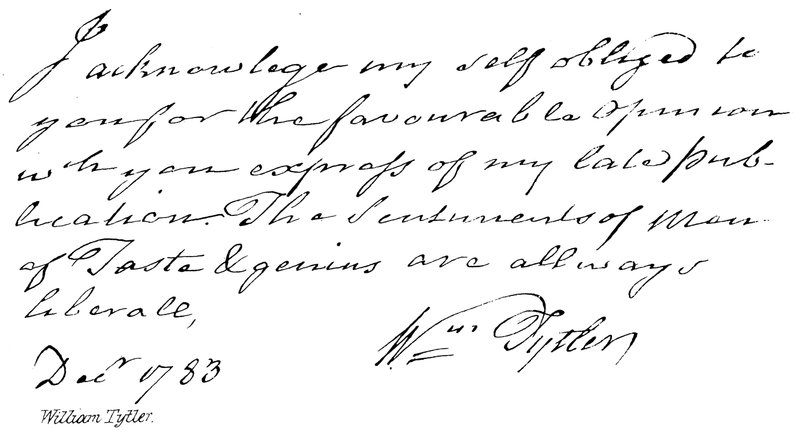 I acknowlege my self obliged to
you for the favourable Opinion
wch you express of my late pub-
lication. The Sentiments of Men
of Taste & genius are allways
liberall,
Wm Tytler
Decr 1783
William Tytler.